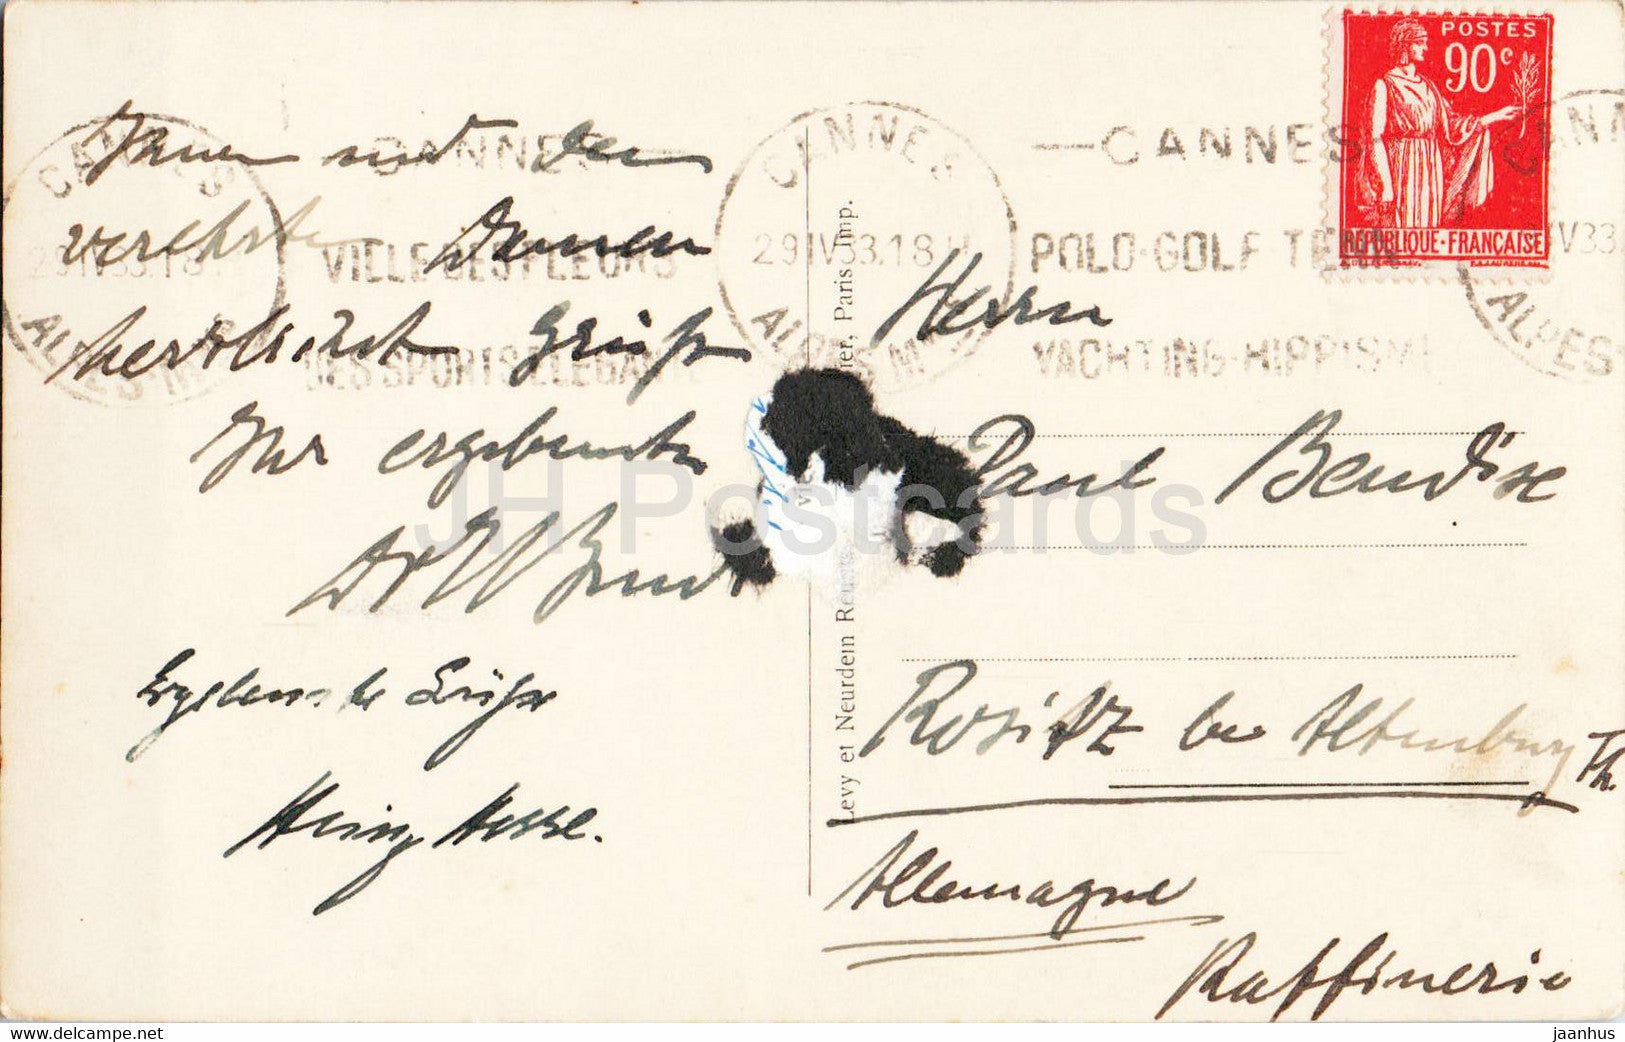 Ihnen und den
verehrten Damen
herzlichst Grüße
Ihr ergebenster
Dr W
Ergebenste Grüße
Heinz Hesse.
CANNES
29 IV 33.18
ALPES-M
CANNES
VILLE DES FLEURS
DES SPORTS ELEGANTS
CANNES
29 IV 33.18
ALPES M
CANNES
POLO-GOLF TENN
YACHTING-HIPPISME
POSTES
90c
REPUBLIQUE-FRANÇAISE
CANN
IV 33
ALPES
Levy et Neurdein Réunis
Paris Imp.
Herrn
Paul
Rositz bei Altenburg Th.
Allemagne
Raffinerie
JH Postcards
www.delcampe.net
jaanhus